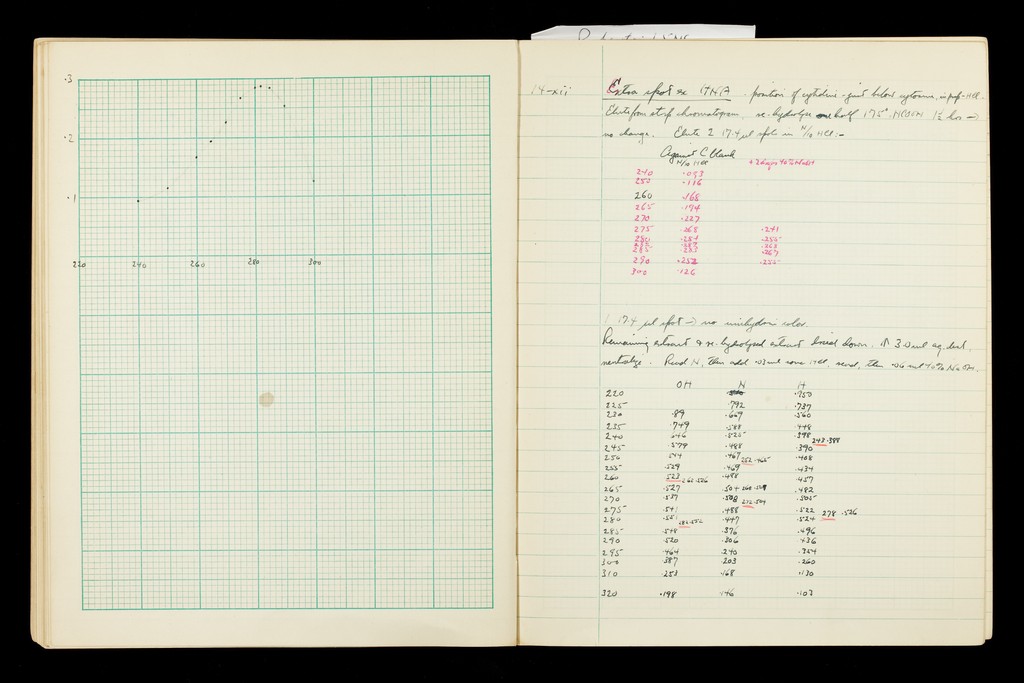 .3
.2
.1
220 240 260 280 300
14-xii Extra spot ex HNA position of cytidine - just below cytosine, in prop-HCl.
Elute from strip chromatogram, re-hydrolyse one half 175° HCOOH 1½ hrs →
no change. Elute 2 17.4 µl spots in N/10 HCl :-
Against C blank
N/10 HCl
240 .093
250 .116
260 .168
265 .194
270 .227
275 .268 .241
280
285
290 .252
300 .126
17.4 µl spot → no ninhydrin color.
Remaining extract & re-hydrolysed extract dried down. 3.0 ml aq. dest.
neutralize. Read N, then add .03 ml conc. HCl, read, then .06 ml 40% NaOH.
OH N H
220 .750
225 .792 .737
230 .89 .669 .560
235 .749 .588 .448
240 .646 .525 .398
243 .388
245 .579 .488 .390
250 .544 .467 .408
252 .465
255 .529 .469 .434
260 .523 .488 .457
262 .526
265 .527 .504 .482
268 .509
270 .537 .508 .505
272 .504
275 .541 .488 .522
278 .526
280 .551 .447 .524
282 .552
285 .548 .376 .496
290 .520 .306 .436
295 .464 .240 .324
300 .387 .203 .260
310 .253 .168 .130
320 .198 .146 .103